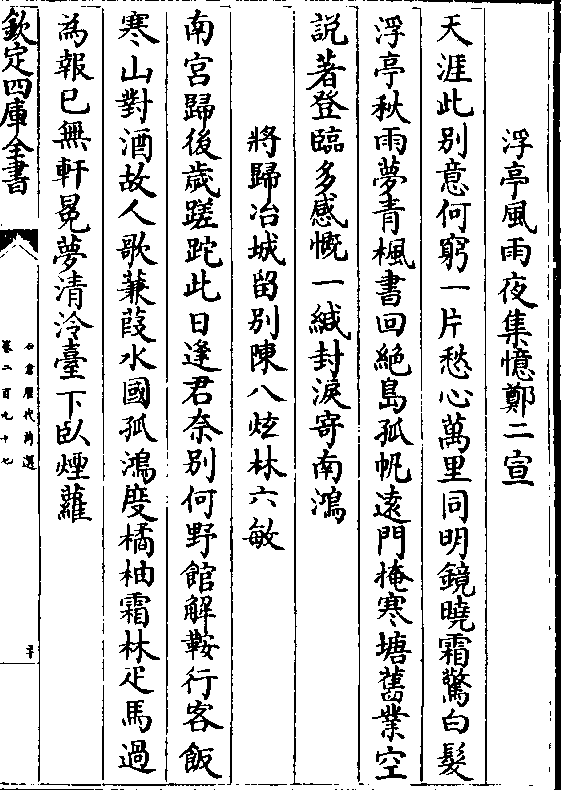 浮亭風雨夜集憶鄭二宣
天涯此别意何窮一片愁心萬里同明鏡曉霜驚白髮
浮亭秋雨夢青楓書回絶島孤帆遠門掩寒塘舊業空
説著登臨多感慨一緘封淚寄南鴻
將歸冶城留别陳八炫林六敏
南宫歸後歲蹉跎此日逢君奈别何野館解鞍行客飯
寒山對酒故人歌蒹葭水國孤鴻度橘柚霜林疋馬過
為報已無軒冕夢清泠臺下卧煙蘿
欽定四庫全書
石倉歴代詩選
卷二百九十七